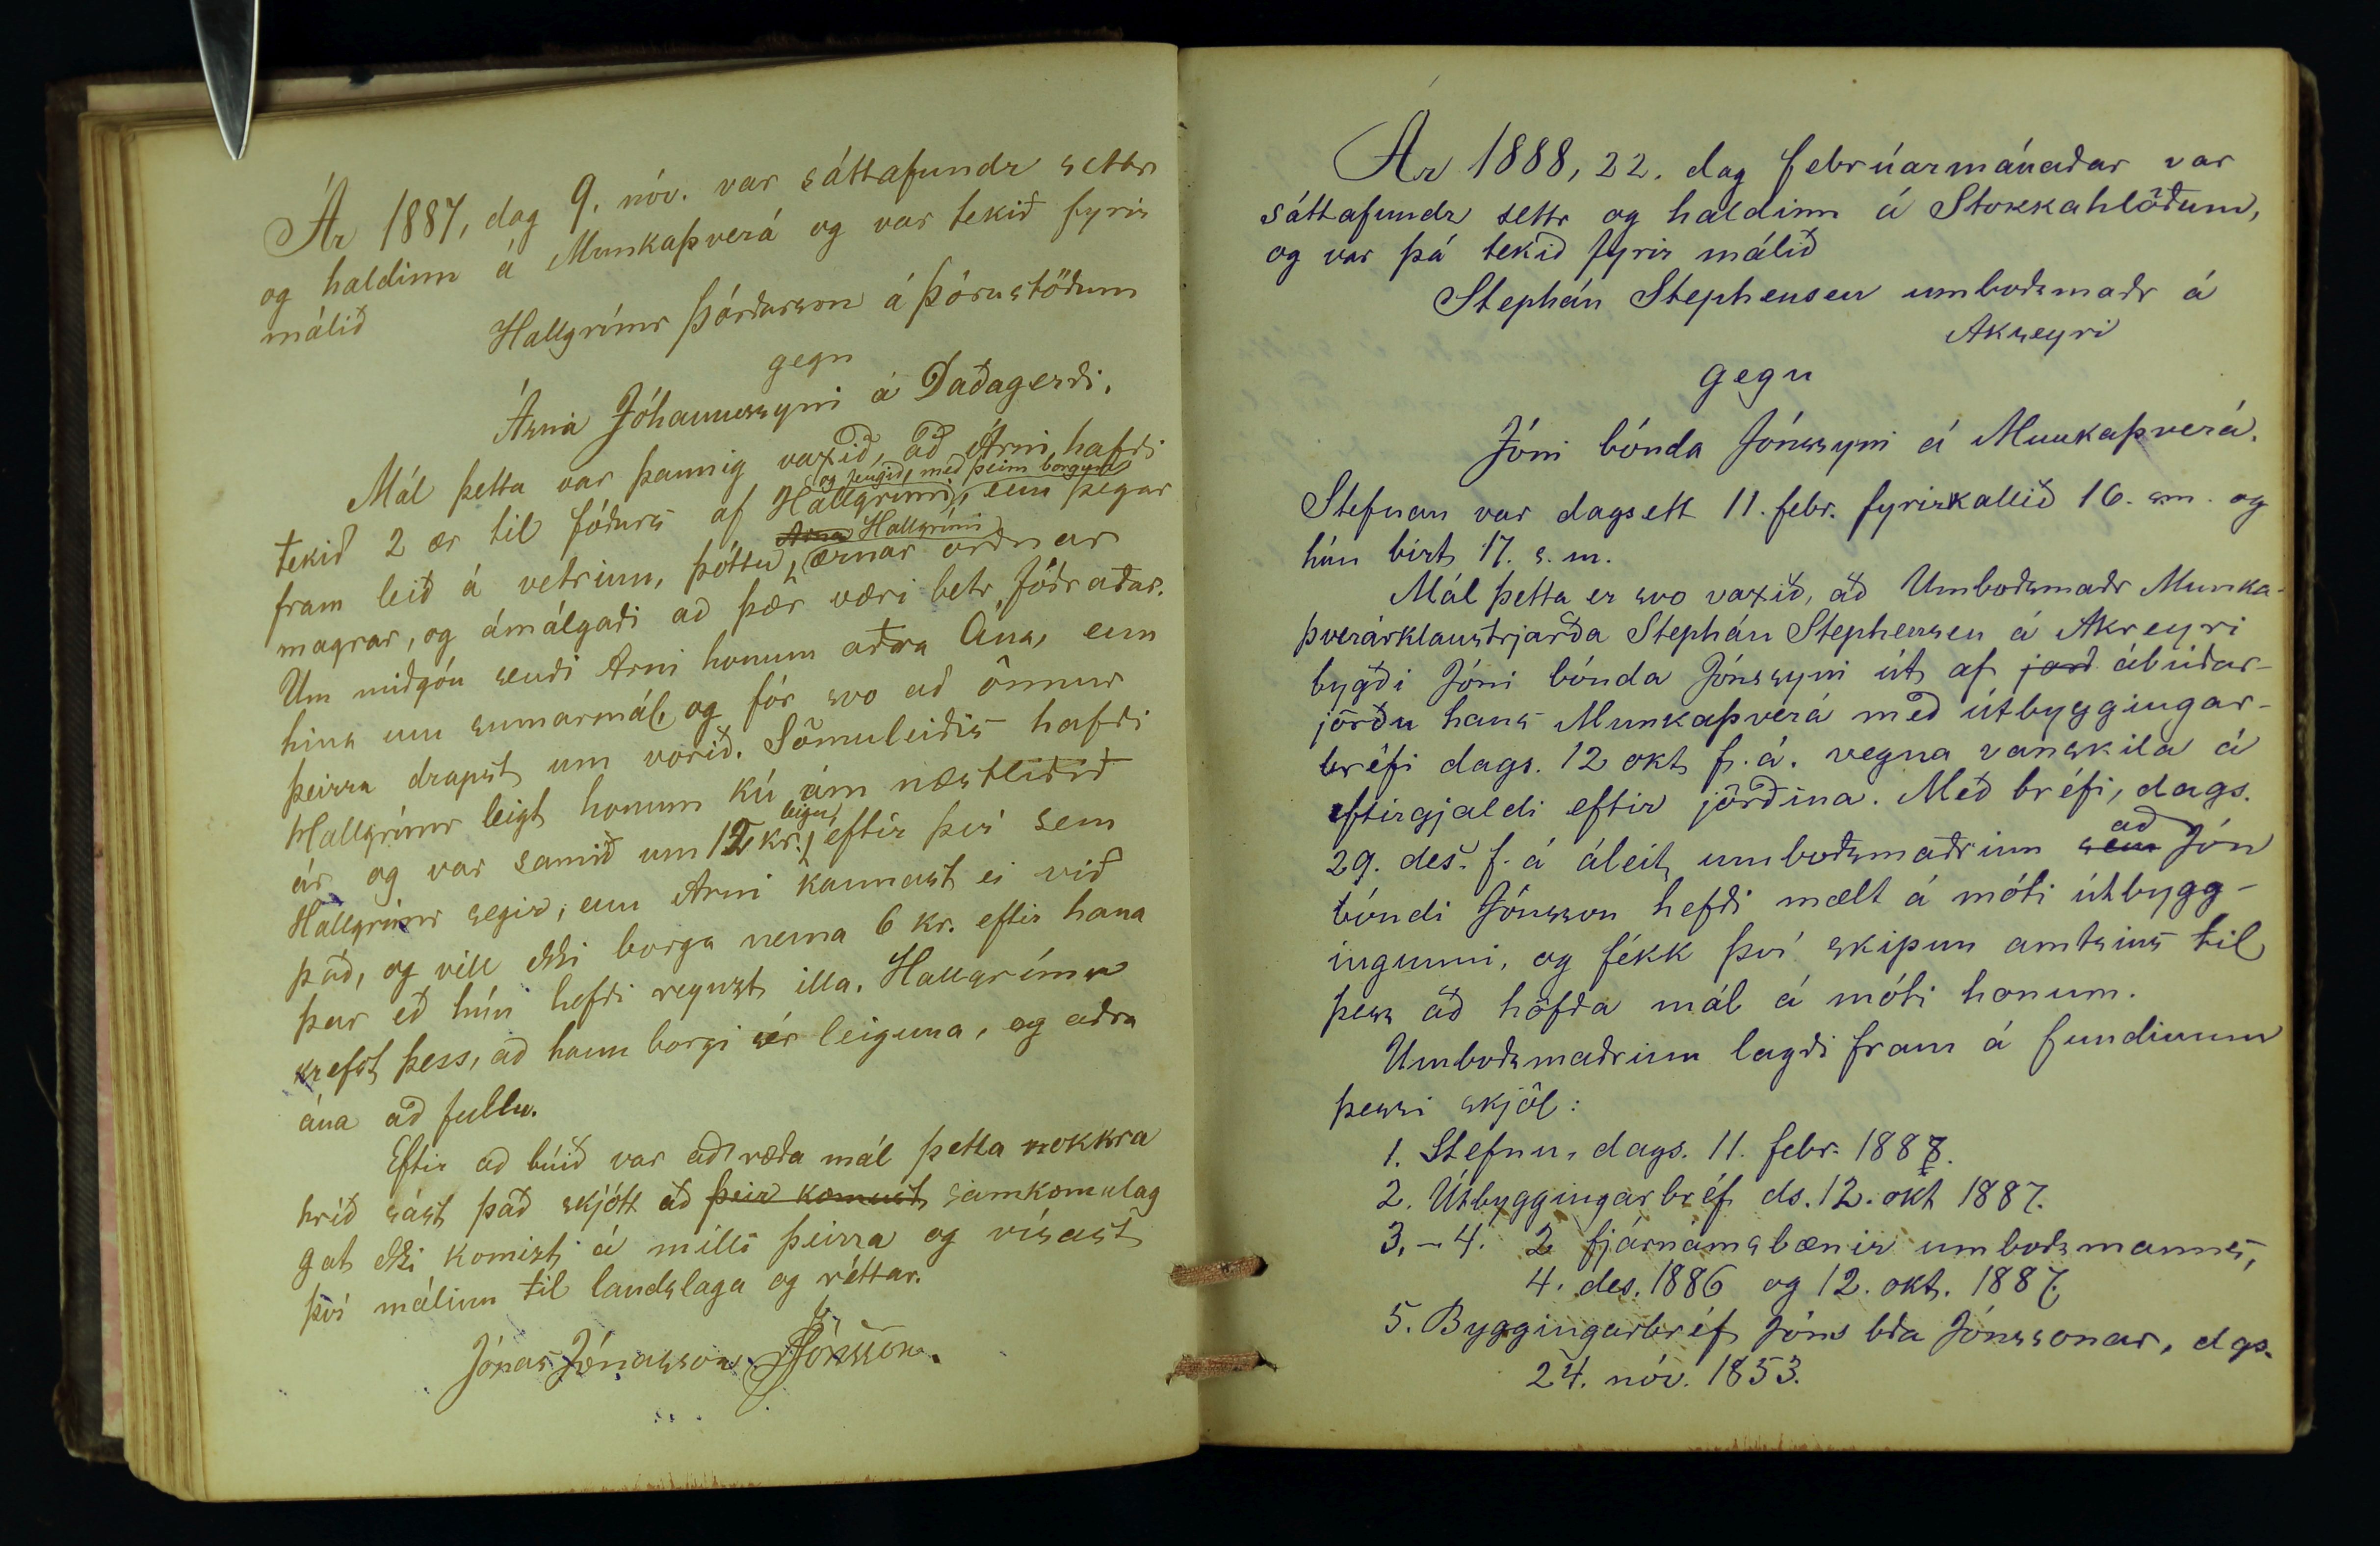 Ár 1887, dag 9. nóv. var sáttafundr settr
og haldinn á Munkaþverá og var tekið fyrir
málið
Hallgrímr Þórðarson á Þórustöðum
gegn
Árna Jóhannessyni á Daðagerði.
Mál þetta var þannig vaxið, að Árni hafði
og fengið, með þeim borgun
tekið 2 ær til fóðurs af Hallgrími, enn þegar
Árna Hallgrími
fram leið á vetrinn, þóttu ærnar orðnar
magrar, og ámálgaði að þær væri betr fóðraðar.
Um miðgóu sendi Árni honum aðra ána, enn
hina um sumarmál, og fór svo að önnur
þeirra drapst um vorið. Sömuleiðis hafði
Hallgrímr leigt honum kú ám næstliðið
leigu,
ár og var samið um 12 kr., eftir því sem
Hallgrímr segir, enn Árni kannast ei við
það, og vill ekki borga nema 6 kr. eftir hana
þar eð hún hefði reynst illa. Hallgrímr
krefst þess, að hann borgi sér leiguna, og aðra
ána að fullu.
Eftir að búið var að ræða mál þetta nokkra
hríð sást það skjótt að þeir komust samkomulag
gat ekki komizt á milli þeirra og vísast
því málinu til landslaga og réttar.
Jónas Jónasson. JJónsson.
Ár 1888, 22. dag febrúarmánaðar var
sáttafundr settr og haldinn á Stokkahlöðum,
og var þá tekið fyrir málið
Stephán Stephensen umboðsmaðr á
Akreyri
gegn
Jóni bónda Jónssyni á Munkaþverá.
Stefnan var dagsett 11. febr. fyrirkallið 16. s.m. og
hún birt 17. s.m.
Mál þetta er svo vaxið, að Umboðsmaðr Munka-
þverárklaustrjarða Stephán Stephensen á Akreyri
bygði Jóni bónda Jónssyni út af jarð ábúðar-
jörðu hans Munkaþverá með útbyggingar-
bréfi dags. 12 okt f.á. vegna vanskila á
eftirgjaldi eftir jörðina. Með bréfi, dags.
að
29. des. f.á áleit umboðsmaðrinn sem Jón
bóndi Jónsson hefði mælt á móti útbygg-
ingunni, og fékk því skipun amtsins til
þess að höfða mál á móti honum.
Umboðsmaðrinn lagði fram á fundinum
þessi skjöl:
1. Stefnu, dags. 11. febr. 1888.
2. Útbyggingarbréf ds. 12. okt 1887.
3.-4. 2 fjárnámsbænir umboðsmanns,
4. des. 1886 og 12. okt. 1887.
5. Byggingarbréf Jóns bda Jónssonar, dgs.
24. nóv. 1853.